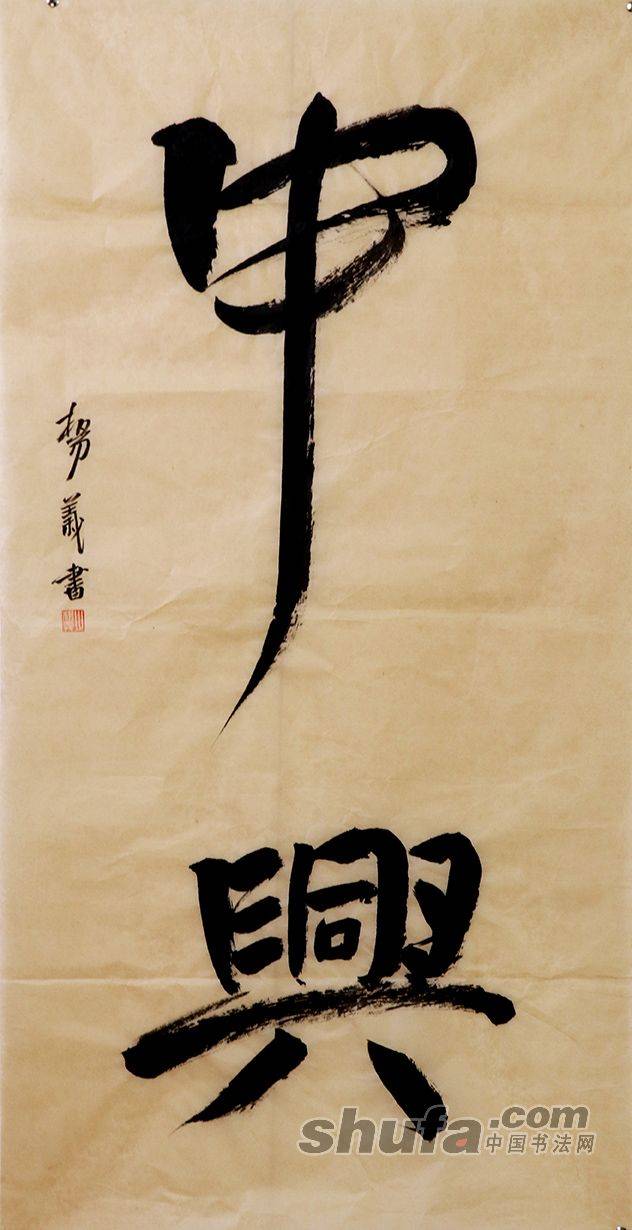 申興
楊義書
shufa.com
中国书法网